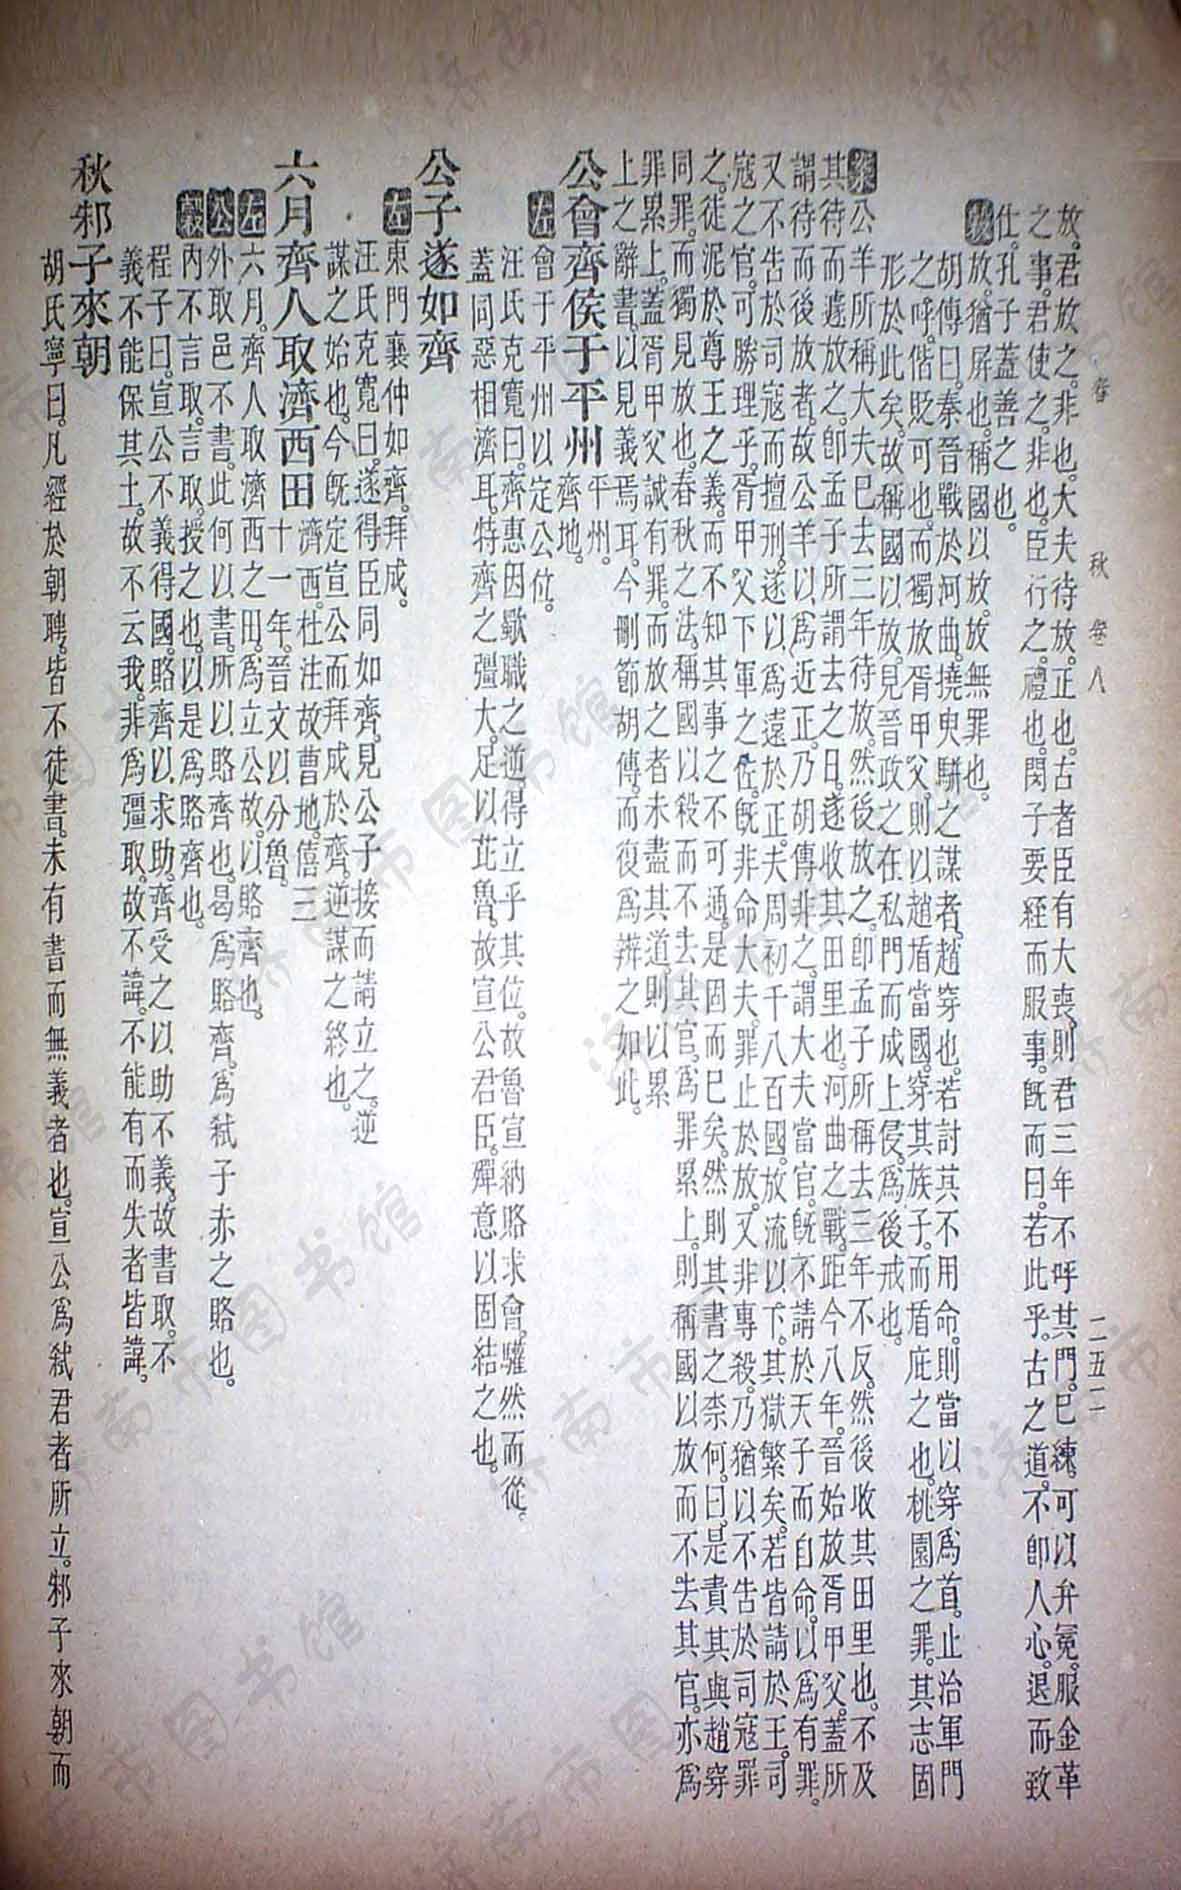 春秋 卷八 二五一
放君放之非也。大夫待放正也。古者臣有大喪。則君三年不呼其門。已練可以弁冕。服金革
之事。君使之非也。臣行之禮也。閔子要絰而服事。旣而曰。若此乎。古之道。不卽人心。退而致
仕。孔子蓋善之也。
穀放。猶屏也。稱國以放。放無罪也。
胡傳曰。秦晉戰於河曲。撓臾騈之謀者。趙穿也。若討其不用命。則當以穿爲首。止治軍門
之呼。偕貶可也。而獨放胥甲父。則以趙盾當國。穿其族子。而盾庇之也。桃園之罪。其志固
形於此矣。故稱國以放。見晉政之在私門而成上侵。爲後戒也。
案公羊所稱大夫已去三年待放。然後放之。卽孟子所稱去三年不反。然後收其田里也。不及
其待而遽放之。卽孟子所謂去之日。遂收其田里也。河曲之戰。距今八年。晉始放胥甲父。蓋所
謂待而後放者。故公羊以爲近正。乃胡傳非之。謂大夫當官。旣不請於天子而自命。以爲有罪。
又不告於司寇而擅刑。遂以爲遠於正。夫周初千八百國。放流以下。其獄繁矣。若皆請於王。司
寇之官。可勝理乎。胥甲父下軍之佐。旣非命大夫。罪止於放。又非專殺。乃猶以不告於司寇罪
之。徒泥於尊王之義。而不知其事之不可通。是固而已矣。然則其書之柰何。曰。是責其與趙穿
同罪。而獨見放也。春秋之法。稱國以殺而不去其官。爲罪累上。則稱國以放而不去其官。亦爲
罪累上。蓋胥甲父誠有罪。而放之者未盡其道。則以累
上之辭書。以見義焉耳。今刪節胡傳。而復爲辨之如此。
公會齊侯于平州 平州。齊地。
左會于平州以定公位。
汪氏克寬曰。齊惠因歜職之逆。得立乎其位。故魯宣納賂求會。驩然而從。
蓋同惡相濟耳。特齊之彊大。足以芘魯。故宣公君臣。殫意以固結之也。
公子遂如齊
左東門襄仲如齊。拜成。
汪氏克寬曰。遂得臣同如齊。見公子接而請立之。逆
謀之始也。今旣定宣公而拜成於齊。逆謀之終也。
六月齊人取濟西田 濟西。杜注故曹地。僖三十一年。晉文以分魯。
左六月。齊人取濟西之田。爲立公故。以賂齊也。
公外取邑不書。此何以書。所以賂齊也。曷爲賂齊。爲弒子赤之賂也。
穀內不言取。言取。授之也。以是爲賂齊也。
程子曰。宣公不義得國。賂齊以求助。齊受之以助不義。故書取。不
義不能保其土。故不云我。非爲彊取。故不諱。不能有而失者皆諱。
秋邾子來朝
胡氏寧曰。凡經於朝聘。皆不徒書。未有書而無義者也。宣公爲弒君者所立。邾子來朝而